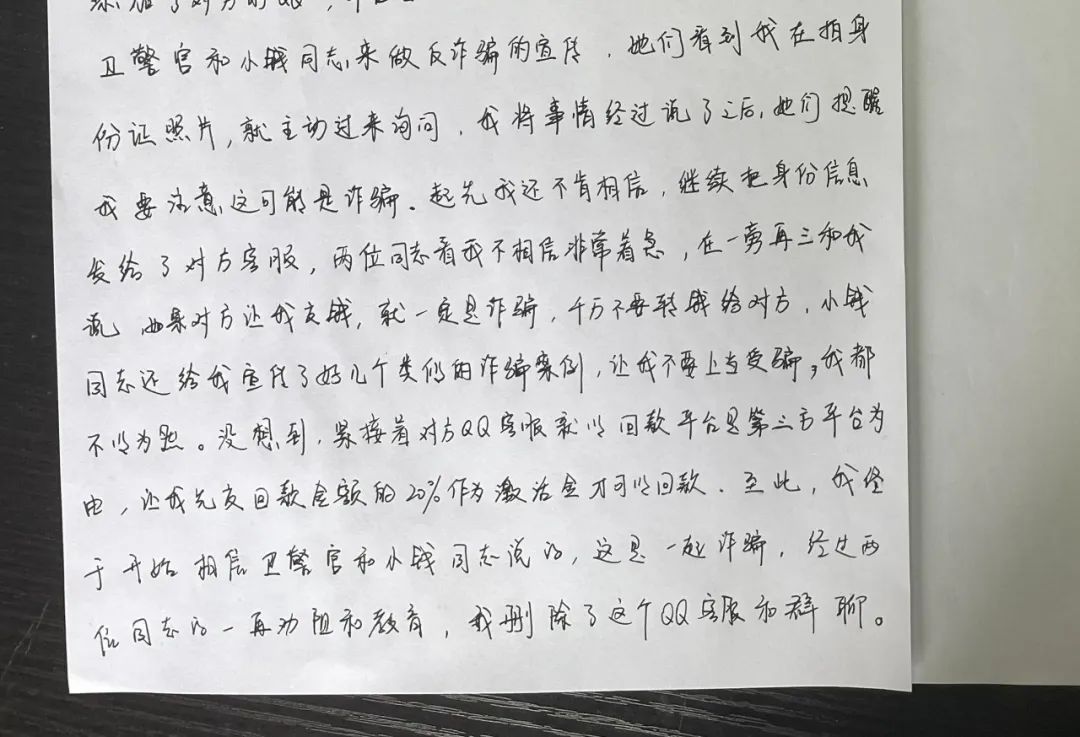 添加了对方的QQ,
卫警官和小钱同志来做反诈骗的宣传，她们看到我在拍身
份证照片，就主动过来询问，我将事情经过说了之后，她们提醒
我要注意这可能是诈骗。起先我还不肯相信，继续把身份信息
发给了对方客服，两位同志看我不相信非常着急，在一旁再三和我
说，如果对方让我交钱，就一定是诈骗，千万不要转钱给对方，小钱
同志还给我宣传了好几个类似的诈骗案例，让我不要上当受骗，我都
不以为然。没想到，紧接着对方QQ客服就以回款平台是第三方平台为
由，让我先交回款金额的20%作为激活金才可以回款。至此，我终
于开始相信卫警官和小钱同志说的，这是一起诈骗，经过两
位同志的一再劝阻和教育，我删除了这个QQ客服和群聊。